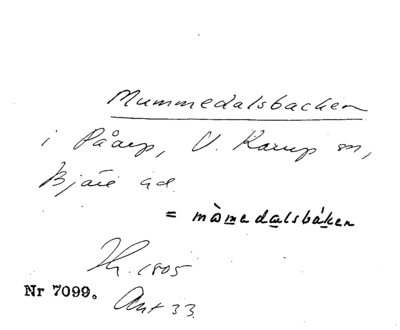 Mummedalsbacken
i Påarp, V. Karup sn,
Bjäre hd.
= mòmedalsbáken
Th. 1805
Nr 7099. Ant 33.